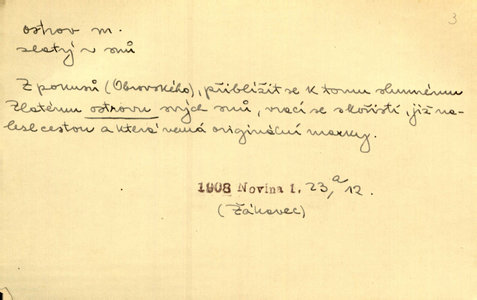 3
ostrov m.
zlatý v snů
Z pokusů (Obrovského), přiblížit se k tomu slunnému
zlatému ostrovu svých snů, vrací se s kořistí, již na-
lesl cestou a která nemá originální marky.
1908 Novina 1. 23, a 12.
(Žákavec)